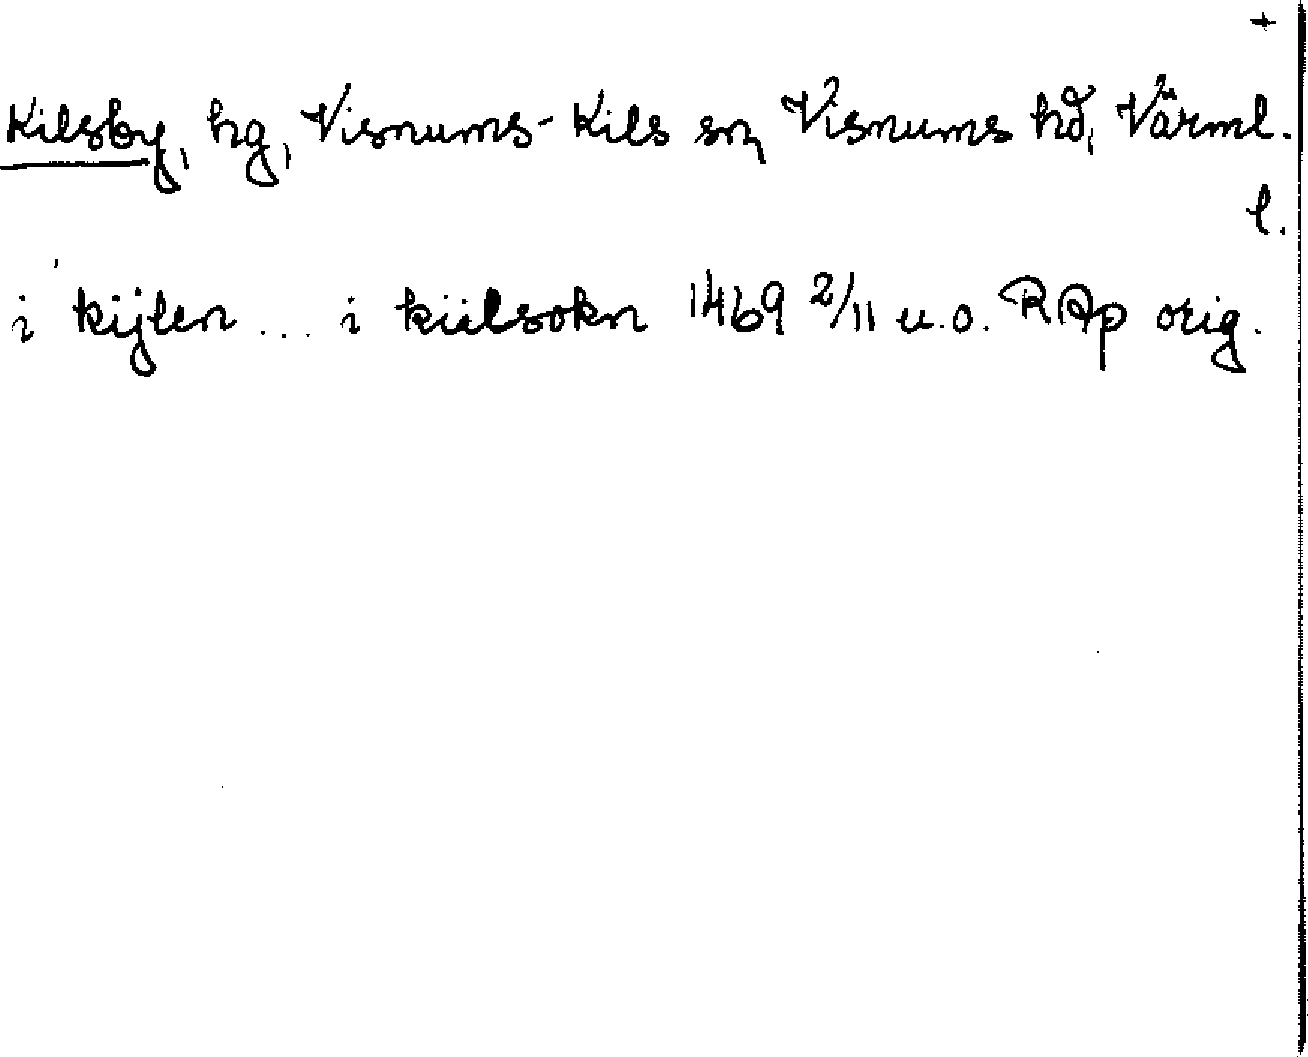 +
Kilsby, hg, Visnums-Kils sn, Visnums hd, Värml.
l.
i kijlen ... i kiilsokn 1469 2/11 u.o. RAp orig.